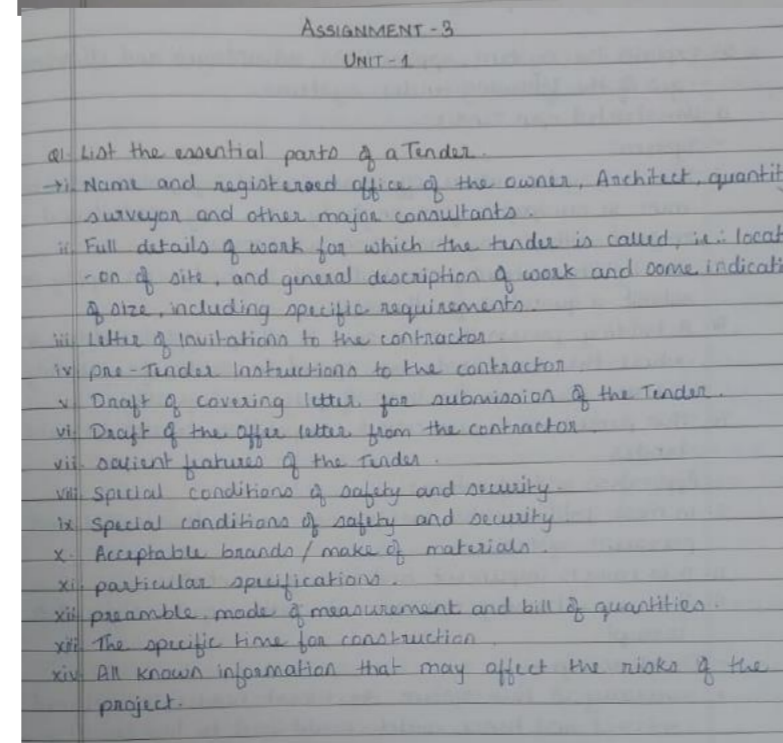 ASSIGNMENT - 3
UNIT - 1
Q1. List the essential parts of a Tender.
→ i. Name and registered office of the owner, Architect, quantit
surveyor and other major consultants.
ii. Full details of work for which the tender is called, i.e.: locat
-on of site, and general description of work and some indicati
of size, including specific requirements.
iii. Letter of Invitations to the contractor
iv. pre-Tender Instructions to the contractor
v. Draft of covering letter for submission of the Tender.
vi. Draft of the offer letter from the contractor.
vii. salient features of the Tender.
viii. Special conditions of safety and security.
ix. Special conditions of safety and security
x. Acceptable brands / make of materials.
xi. particular specifications.
xii. preamble, mode of measurement and bill of quantities.
xiii. The specific time for construction.
xiv. All known information that may affect the risks of the
project.